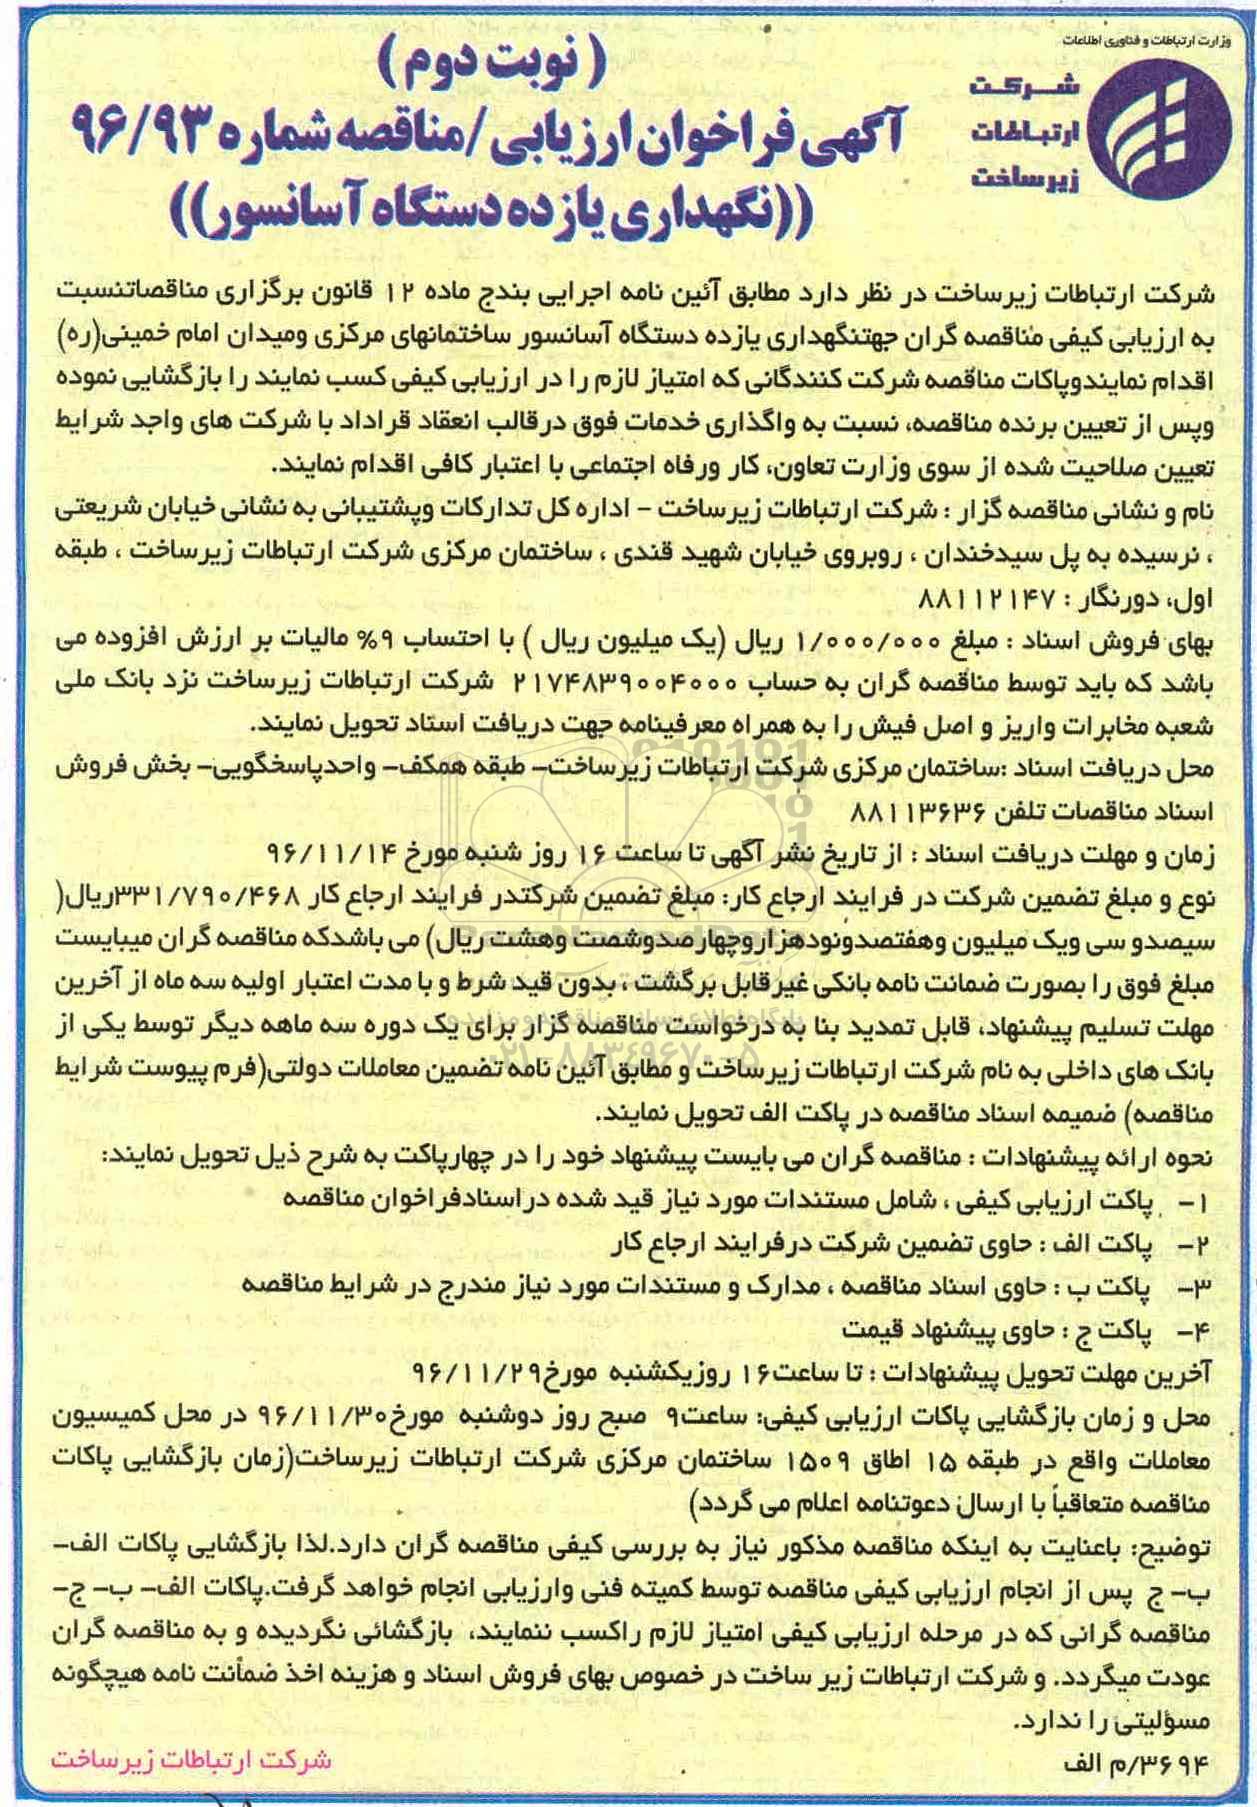 وزارت ارتباطات و فناوری اطلاعات
شرکت
ارتباطات
زیرساخت
( نوبت دوم )
آگهی فراخوان ارزیابی /مناقصه شماره ۹۶/۹۳
((نگهداری یازده دستگاه آسانسور))
شرکت ارتباطات زیرساخت در نظر دارد مطابق آئین نامه اجرایی بندج ماده ۱۲ قانون برگزاری مناقصاتنسبت
به ارزیابی کیفی مناقصه گران جهتنگهداری یازده دستگاه آسانسور ساختمانهای مرکزی ومیدان امام خمینی(ره)
اقدام نمایندوپاکات مناقصه شرکت کنندگانی که امتیاز لازم را در ارزیابی کیفی کسب نمایند را بازگشایی نموده
وپس از تعیین برنده مناقصه، نسبت به واگذاری خدمات فوق درقالب انعقاد قراداد با شرکت های واجد شرایط
تعیین صلاحیت شده از سوی وزارت تعاون، کار ورفاه اجتماعی با اعتبار کافی اقدام نمایند.
نام و نشانی مناقصه گزار : شرکت ارتباطات زیرساخت - اداره کل تدارکات وپشتیبانی به نشانی خیابان شریعتی
، نرسیده به پل سیدخندان ، روبروی خیابان شهید قندی ، ساختمان مرکزی شرکت ارتباطات زیرساخت ، طبقه
اول، دورنگار : ۸۸۱۱۲۱۴۷
بهای فروش اسناد : مبلغ ۱/۰۰۰/۰۰۰ ریال (یک میلیون ریال ) با احتساب ۹% مالیات بر ارزش افزوده می
باشد که باید توسط مناقصه گران به حساب ۲۱۷۴۸۳۹۰۰۴۰۰۰ شرکت ارتباطات زیرساخت نزد بانک ملی
شعبه مخابرات واریز و اصل فیش را به همراه معرفینامه جهت دریافت اسناد تحویل نمایند.
محل دریافت اسناد :ساختمان مرکزی شرکت ارتباطات زیرساخت- طبقه همکف- واحدپاسخگویی- بخش فروش
اسناد مناقصات تلفن ۸۸۱۱۳۶۳۶
زمان و مهلت دریافت اسناد : از تاریخ نشر آگهی تا ساعت ۱۶ روز شنبه مورخ ۹۶/۱۱/۱۴
نوع و مبلغ تضمین شرکت در فرایند ارجاع کار: مبلغ تضمین شرکتدر فرایند ارجاع کار ۳۳۱/۷۹۰/۴۶۸ریال(
سیصدو سی ویک میلیون وهفتصدونودهزاروچهارصدوشصت وهشت ریال) می باشدکه مناقصه گران میبایست
مبلغ فوق را بصورت ضمانت نامه بانکی غیرقابل برگشت ، بدون قید شرط و با مدت اعتبار اولیه سه ماه از آخرین
مهلت تسلیم پیشنهاد، قابل تمدید بنا به درخواست مناقصه گزار برای یک دوره سه ماهه دیگر توسط یکی از
بانک های داخلی به نام شرکت ارتباطات زیرساخت و مطابق آئین نامه تضمین معاملات دولتی(فرم پیوست شرایط
مناقصه) ضمیمه اسناد مناقصه در پاکت الف تحویل نمایند.
نحوه ارائه پیشنهادات : مناقصه گران می بایست پیشنهاد خود را در چهارپاکت به شرح ذیل تحویل نمایند:
۱- پاکت ارزیابی کیفی ، شامل مستندات مورد نیاز قید شده دراسنادفراخوان مناقصه
۲- پاکت الف : حاوی تضمین شرکت درفرایند ارجاع کار
۳- پاکت ب : حاوی اسناد مناقصه ، مدارک و مستندات مورد نیاز مندرج در شرایط مناقصه
۴- پاکت ج : حاوی پیشنهاد قیمت
آخرین مهلت تحویل پیشنهادات : تا ساعت۱۶ روزیکشنبه مورخ۹۶/۱۱/۲۹
محل و زمان بازگشایی پاکات ارزیابی کیفی: ساعت۹ صبح روز دوشنبه مورخ۹۶/۱۱/۳۰ در محل کمیسیون
معاملات واقع در طبقه ۱۵ اطاق ۱۵۰۹ ساختمان مرکزی شرکت ارتباطات زیرساخت(زمان بازگشایی پاکات
مناقصه متعاقباً با ارسال دعوتنامه اعلام می گردد)
توضیح: باعنایت به اینکه مناقصه مذکور نیاز به بررسی کیفی مناقصه گران دارد.لذا بازگشایی پاکات الف-
ب- ج پس از انجام ارزیابی کیفی مناقصه توسط کمیته فنی وارزیابی انجام خواهد گرفت.پاکات الف- ب- ج-
مناقصه گرانی که در مرحله ارزیابی کیفی امتیاز لازم راکسب ننمایند، بازگشائی نگردیده و به مناقصه گران
عودت میگردد. و شرکت ارتباطات زیر ساخت در خصوص بهای فروش اسناد و هزینه اخذ ضمانت نامه هیچگونه
مسؤلیتی را ندارد.
۳۶۹۴/م الف
شرکت ارتباطات زیرساخت